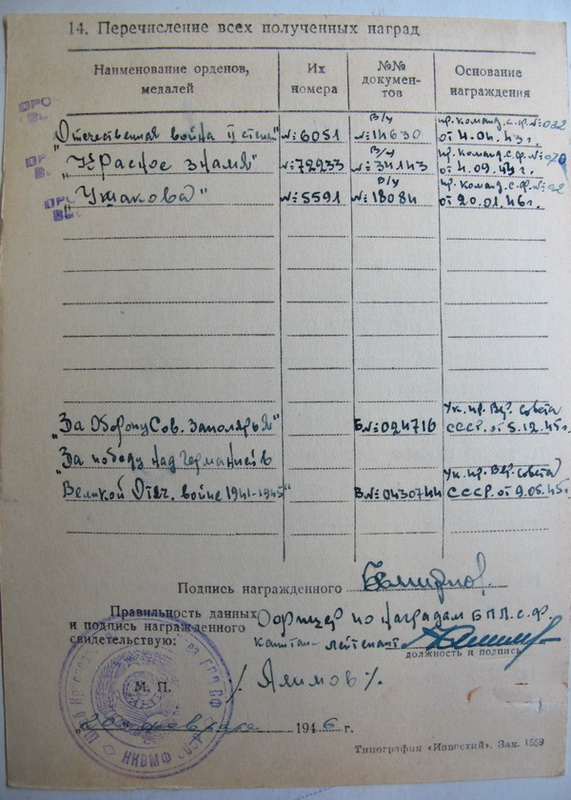 14. Перечисление всех полученных наград
Наименование орденов, медалей
Их номера
№№ документов
Основание награждения
ПРО
"Отечественная война II степ" № 6051 в/у № 114630 пр. команд. С.Ф. № 032 от 4.04.43 г.
"Красное знамя" № 72933 в/у № 341143 пр. команд. С.Ф. № от 4.09.44 г.
"Ушакова" № 5591 в/у № 18084 пр. команд. С.Ф. № 02 от 20.01.46 г.
"За Оборону Сов. Заполярья" Б № 024716 Ук. пр. Вер. Совета СССР. от 5.12.45 г.
"За победу над Германией в
Великой Отеч. войне 1941-1945" В № 0430744 Ук. пр. Вер. Совета СССР. от 9.05.45 г.
Подпись награжденного
Правильность данных и подпись награжденного свидетельствую:
Офицер по наградам БПЛ. С.Ф.
капитан-лейтенант
должность и подпись
М. П.
/Алимов/.
"20" февраля 1946 г.
НКВМФ
Типография «Известий». Зак. 1559